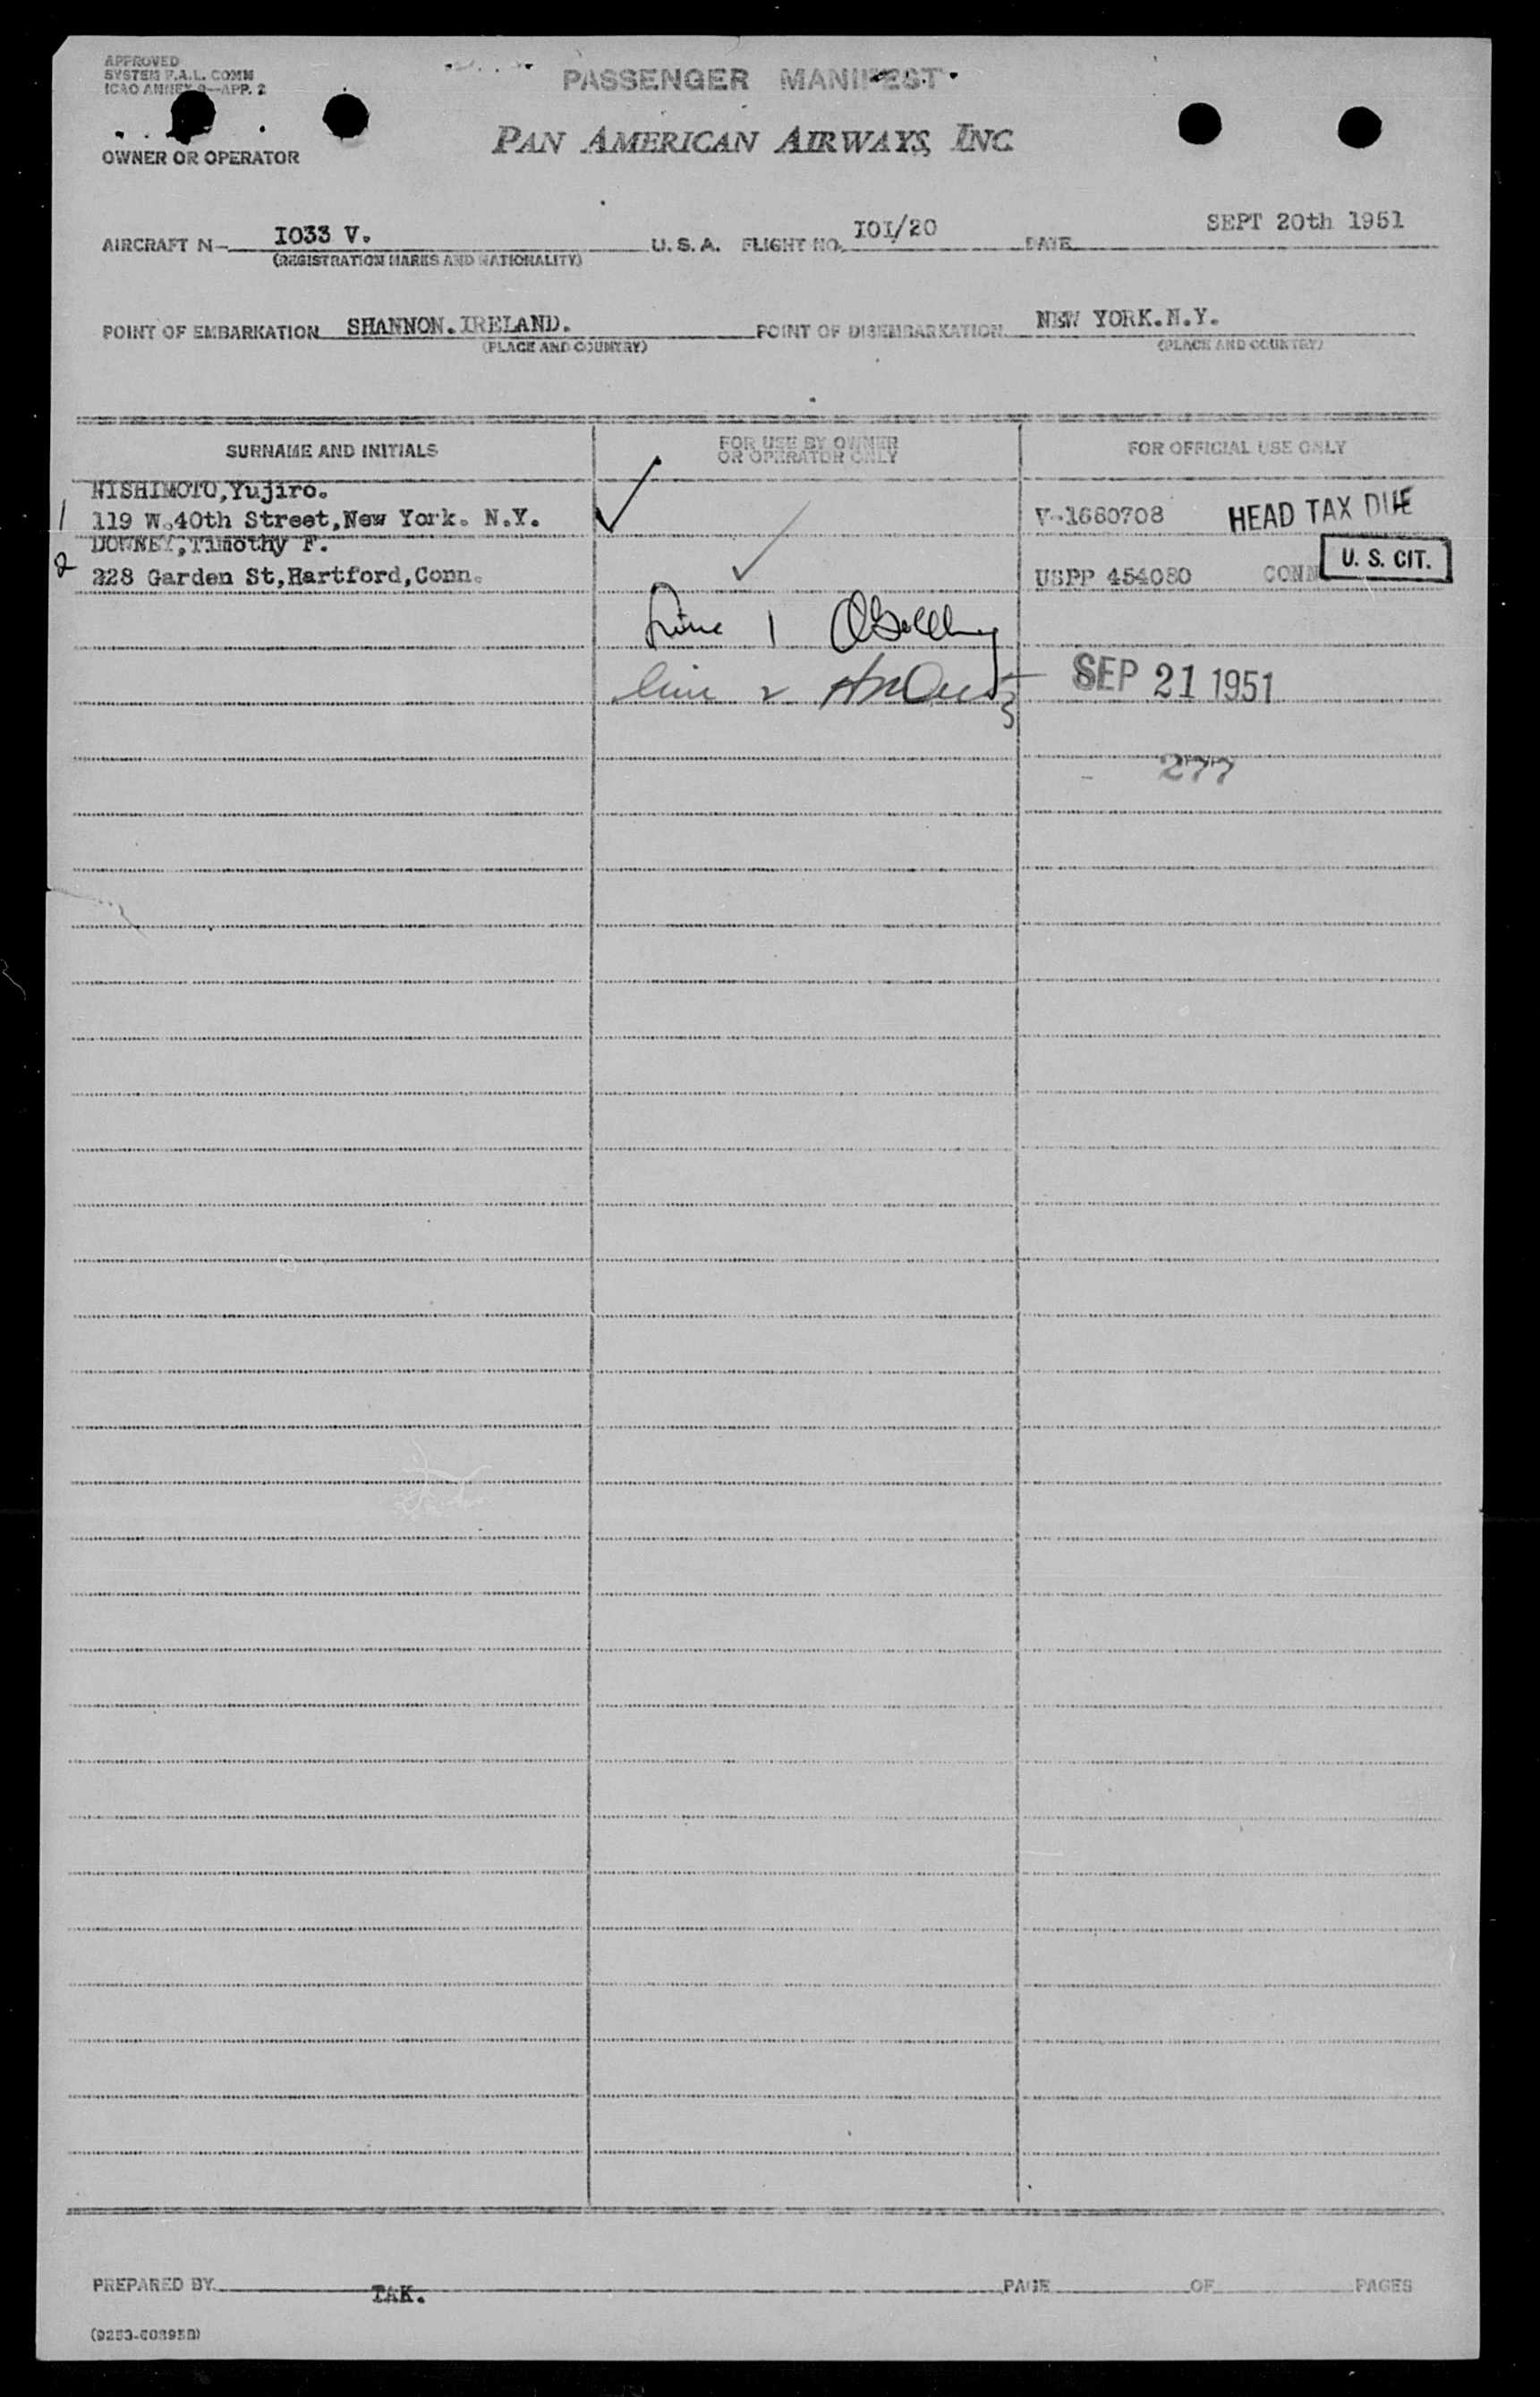 APPROVED
SYSTEM F.A.L. COMM
ICAO ANNEX 9—APP. 2
PASSENGER MANIFEST
PAN AMERICAN AIRWAYS, INC.
OWNER OR OPERATOR
AIRCRAFT N— I033 V. U. S. A. FLIGHT NO. I0I/20 DATE SEPT 20th 1951
(REGISTRATION MARKS AND NATIONALITY)
POINT OF EMBARKATION SHANNON. IRELAND. POINT OF DISEMBARKATION NEW YORK.N.Y.
(PLACE AND COUNTRY) (PLACE AND COUNTRY)
SURNAME AND INITIALS FOR USE BY OWNER OR OPERATOR ONLY FOR OFFICIAL USE ONLY
NISHIMOTO,Yujiro.
1 119 W.40th Street,New York. N.Y. V-1680708 HEAD TAX DUE
DOWNEY,Timothy F.
2 228 Garden St,Hartford,Conn. USPP 454080 CONN U. S. CIT.
Line 1
line 2 SEP 21 1951
277
PREPARED BY TAK. PAGE OF PAGES